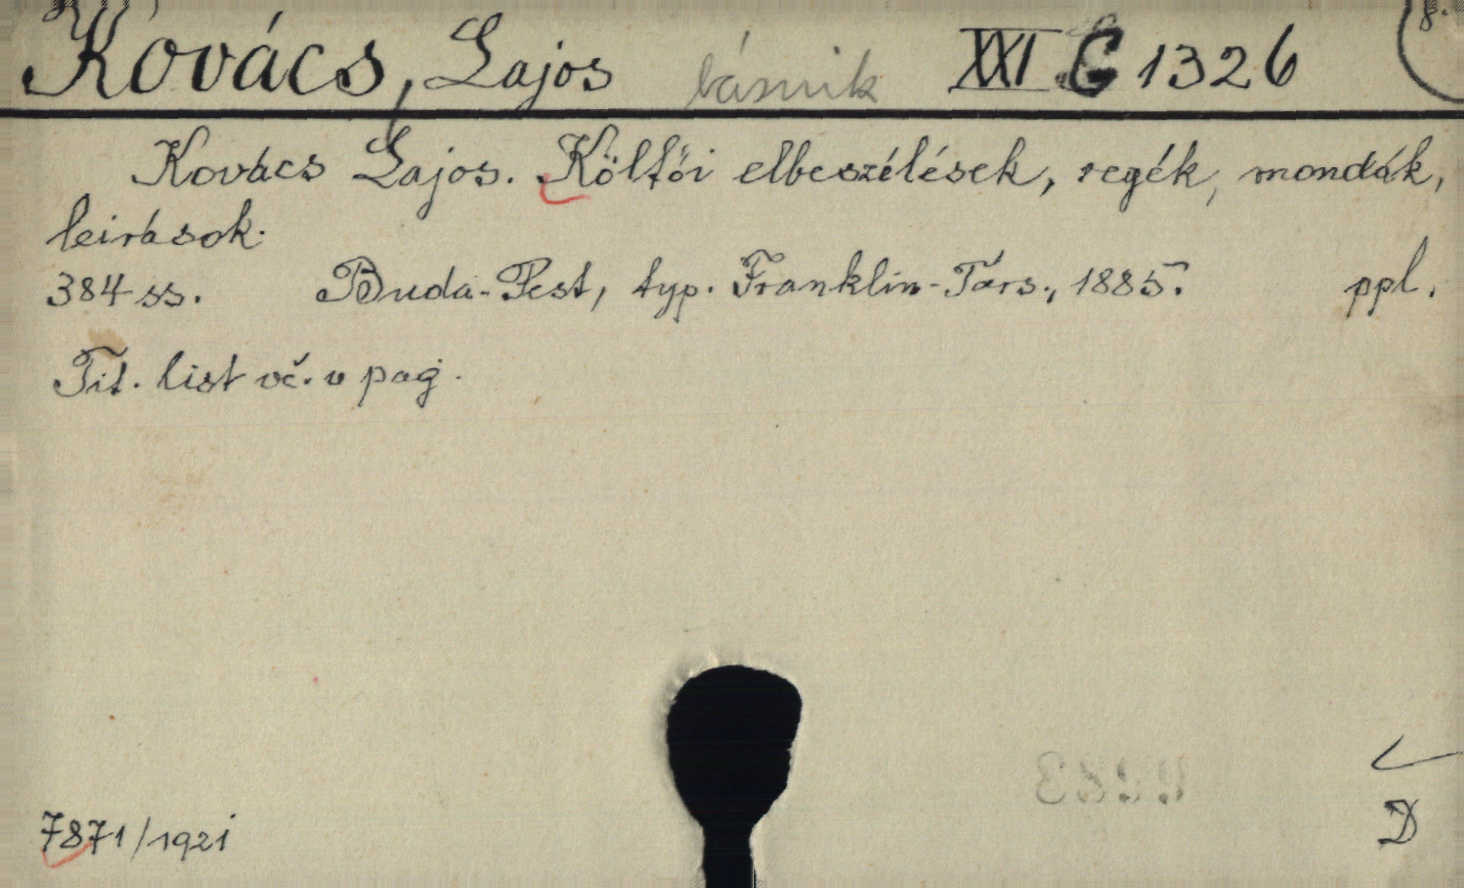 Kovács, Lajos básník XXI G 1326 8.
Kovács Lajos. Költői elbeszélések, regék, mondák,
leirások.
384 ss. Buda-Pest, typ. Franklin-Társ., 1885. ppl.
Tit. list vč. v pag.
7871/1921
D